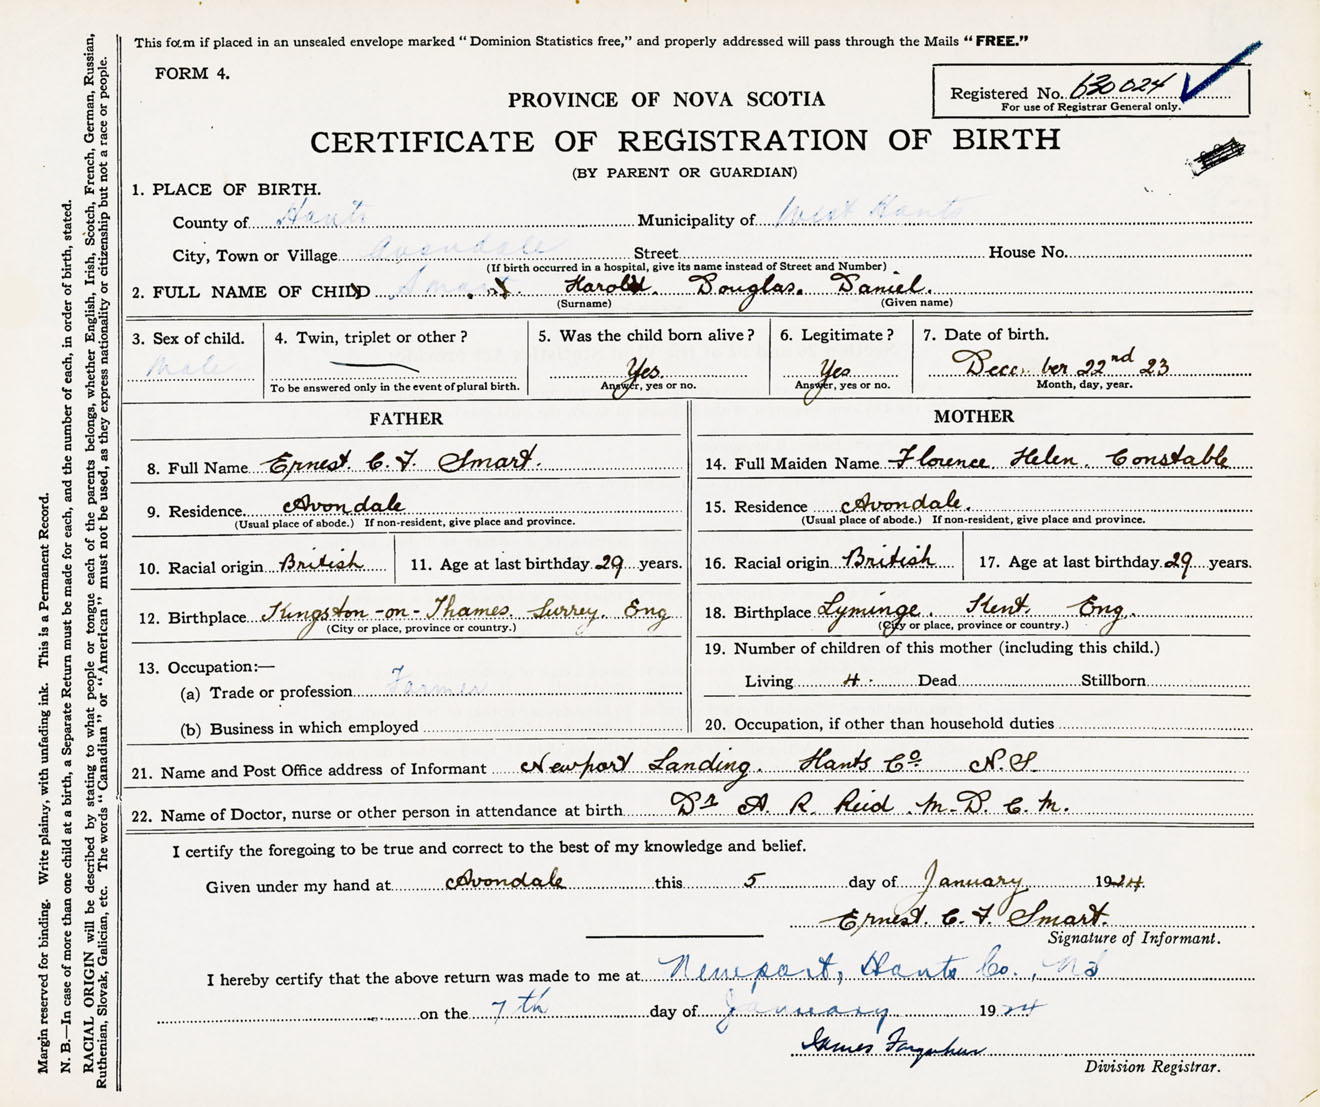 This form if placed in an unsealed envelope marked "Dominion Statistics free," and properly addressed will pass through the Mails "FREE."
FORM 4.
Registered No. 630024
For use of Registrar General only.
PROVINCE OF NOVA SCOTIA
CERTIFICATE OF REGISTRATION OF BIRTH
(BY PARENT OR GUARDIAN)
1. PLACE OF BIRTH.
County of Hants Municipality of West Hants
City, Town or Village Avondale Street House No.
(If birth occurred in a hospital, give its name instead of Street and Number)
2. FULL NAME OF CHILD Smart Harold. Douglas. Daniel.
(Surname) (Given name)
3. Sex of child. Male
4. Twin, triplet or other ?
To be answered only in the event of plural birth.
5. Was the child born alive ? Yes
Answer, yes or no.
6. Legitimate ? Yes
Answer, yes or no.
7. Date of birth. December 22nd 23
Month, day, year.
FATHER
8. Full Name Ernest C. F. Smart.
9. Residence Avondale
(Usual place of abode.) If non-resident, give place and province.
10. Racial origin British 11. Age at last birthday 29 years.
12. Birthplace Kingston-on-Thames. Surrey. Eng
(City or place, province or country.)
13. Occupation:—
(a) Trade or profession Farmer
(b) Business in which employed
MOTHER
14. Full Maiden Name Florence Helen. Constable
15. Residence Avondale.
(Usual place of abode.) If non-resident, give place and province.
16. Racial origin British 17. Age at last birthday 29 years.
18. Birthplace Lyminge. Kent. Eng.
(City or place, province or country.)
19. Number of children of this mother (including this child.)
Living 4. Dead Stillborn
20. Occupation, if other than household duties
21. Name and Post Office address of Informant Newport Landing. Hants Co. N.S.
22. Name of Doctor, nurse or other person in attendance at birth Dr A. R. Reid M.D.C.M.
I certify the foregoing to be true and correct to the best of my knowledge and belief.
Given under my hand at Avondale this 5 day of January 1924.
Ernest. C. F. Smart.
Signature of Informant.
I hereby certify that the above return was made to me at Newport, Hants Co., NS
on the 7th day of January 1924
James Farquhar
Division Registrar.
Margin reserved for binding. Write plainy, with unfading ink. This is a Permanent Record.
N. B.—In case of more than one child at a birth, a Separate Return must be made for each, and the number of each, in order of birth, stated.
RACIAL ORIGIN will be described by stating to what people or tongue each of the parents belongs, whether English, Irish, Scotch, French, German, Russian,
Ruthenian, Slovak, Galician, etc. The words "Canadian" or "American" must not be used, as they express nationality or citizenship but not a race or people.